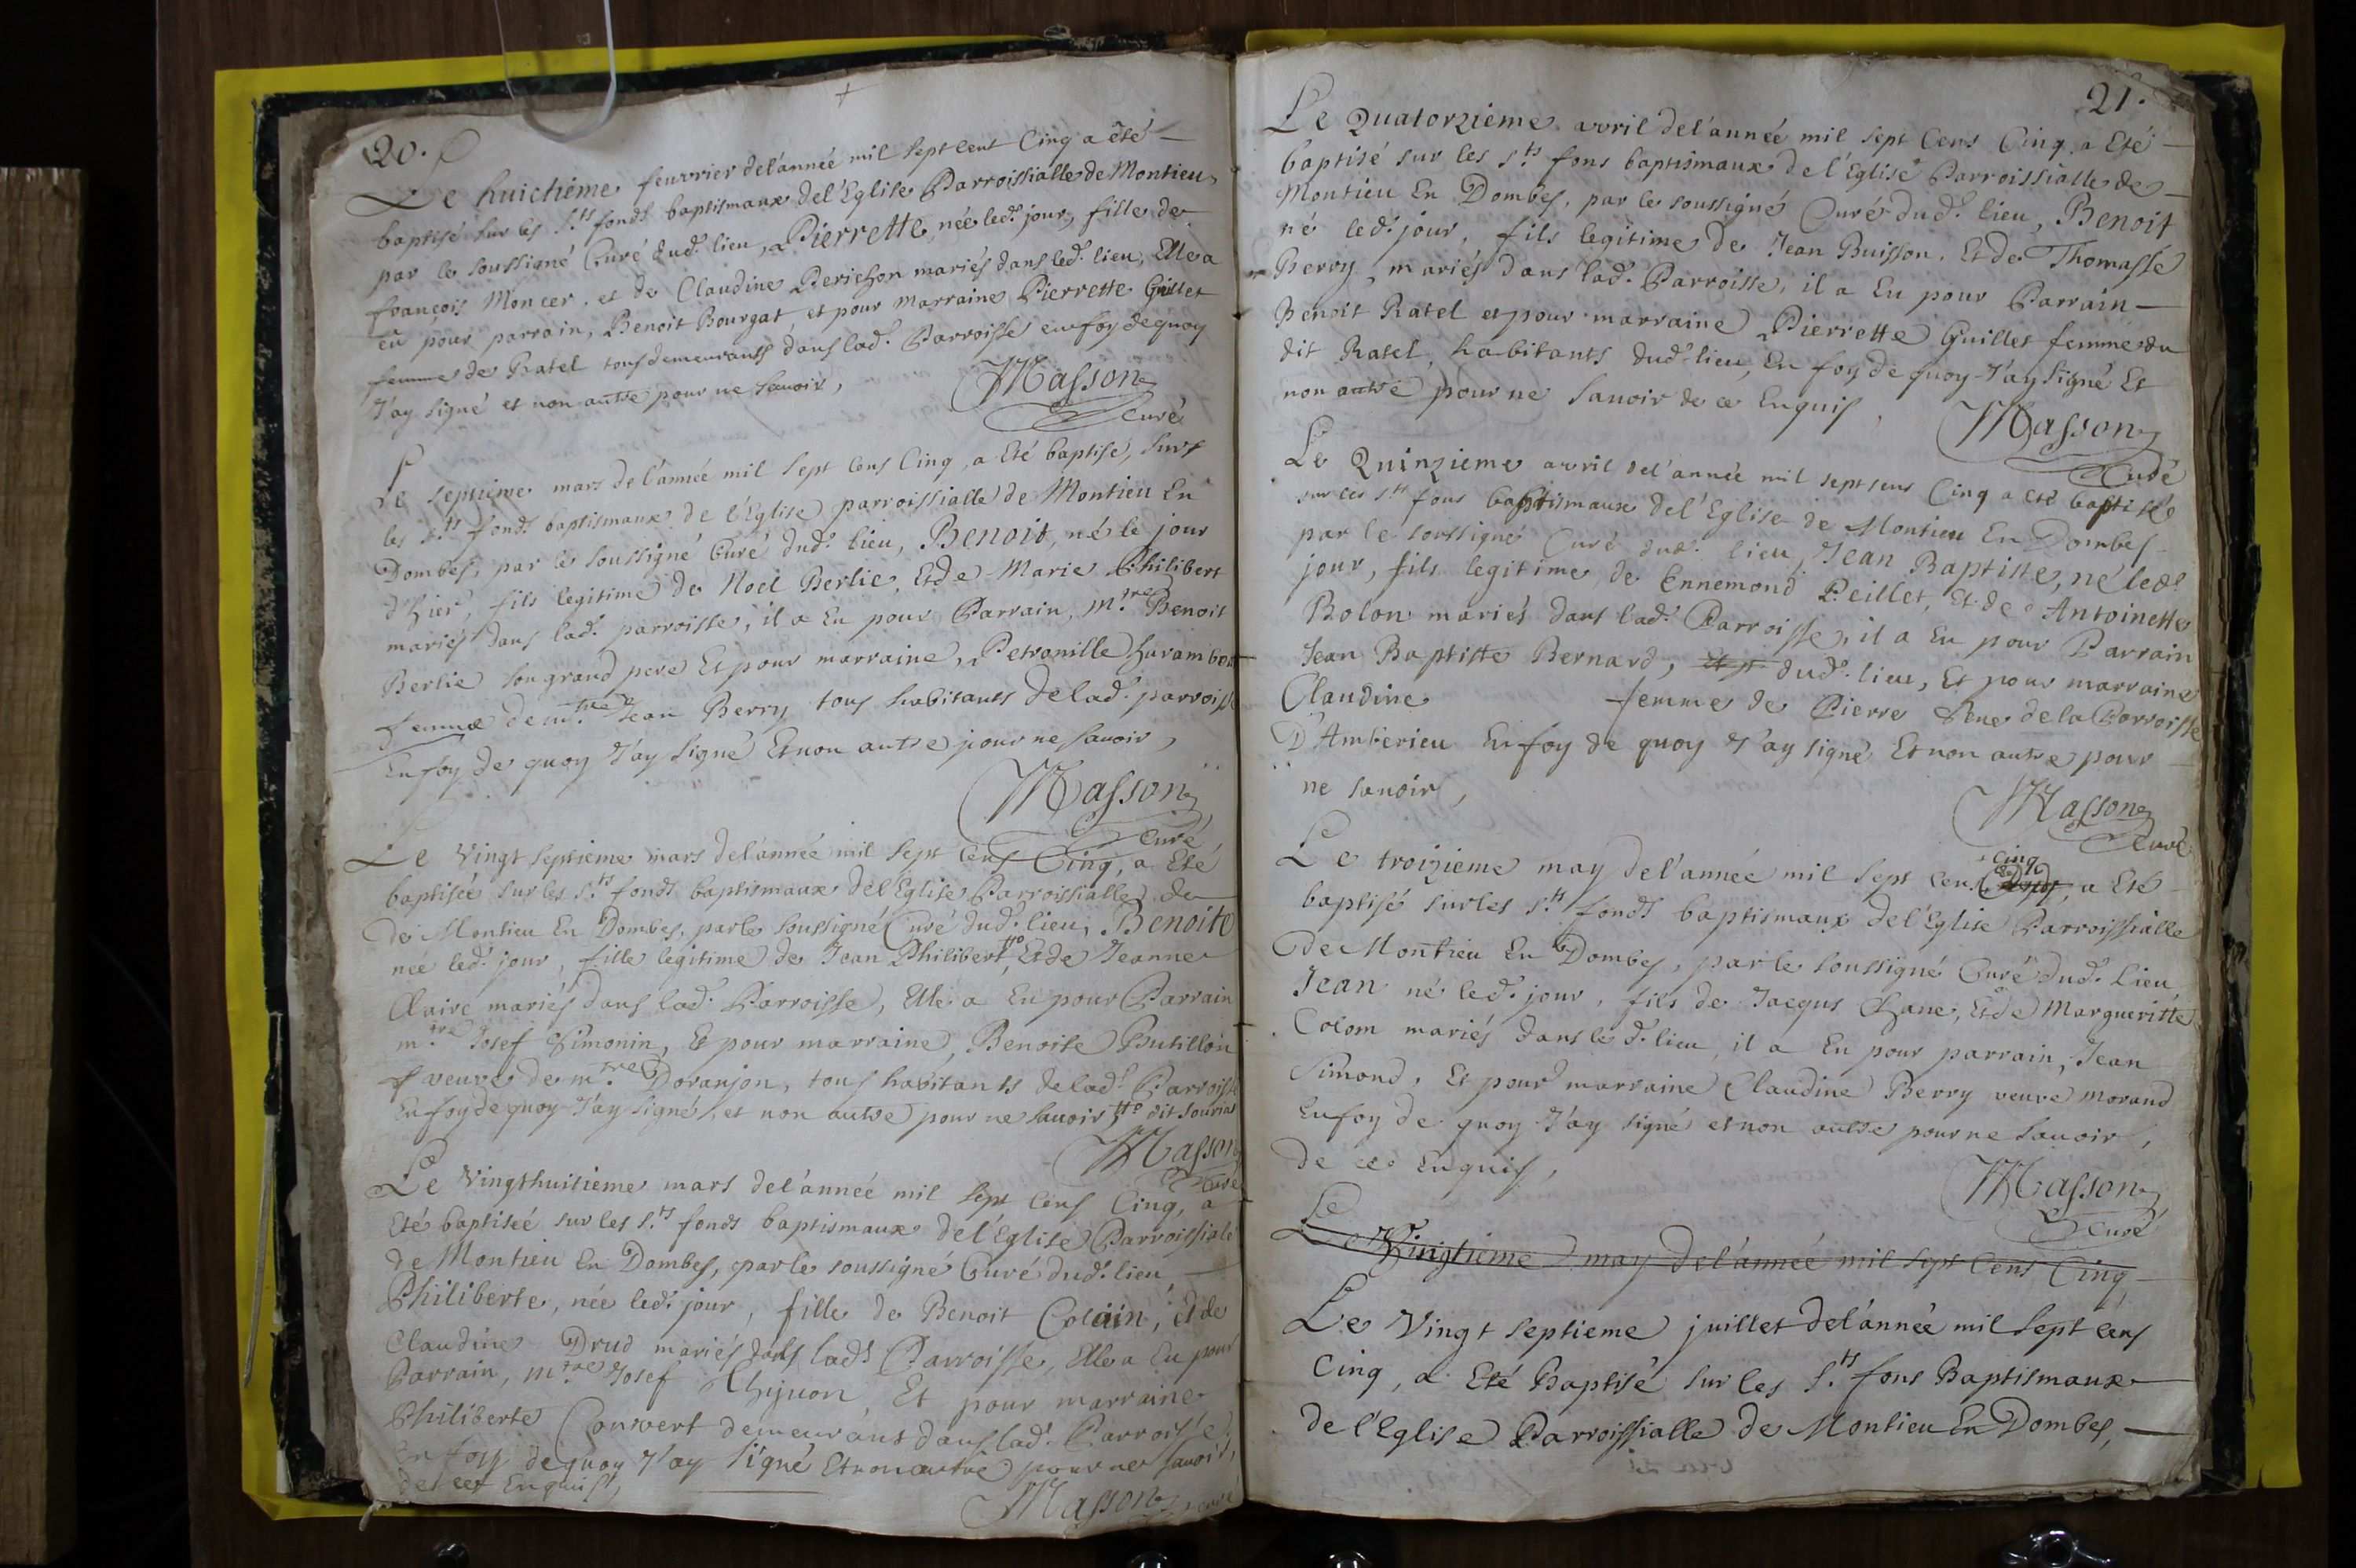 20.
Le huictiême feuvrier del'année mil sept cent Cinq a êté
baptisé sur les s.ts fonds baptismaux del'Eglise Parroissialle de Montieu,
par le soussigné Curé dud.t lieu, Pierrette, née led.t jour, fille de
françois Moncer. et de Claudine Perichon mariés dans led.t lieu, Elle a
eû pour parrain, Benoit Bourgat et pour marraine Pierrette Guillet
femme de Ratel tous demeurants dans lad.t Parroisse en foy de quoy
J'ay signé et non autre pour ne sauoir,
Masson
Curé
Le septiême mars del'année mil sept cens Cinq, a Eté baptisé, sur
les s.ts fonds baptismaux de l'Eglise parroissialle de Montieu En
Dombes, par le soussigné Curé dud.t lieu, Benoit, né le jour
d'hier, fils legitime de Noël Berlie, Et de Marie Philibert
mariés dans lad.t parroisse, il a Eu pour Parrain, m.tre Benoit
Berlie son grand pere Et pour marraine, Petronille
femme de m.tre Jean Berry tous habitants de lad.t parroisse
En foy de quoy J'ay signé Et non autre pour ne sauoir,
Masson
Curé
Le Vingt septieme mars del'année mil sept Cens Cinq, a Eté
baptisée sur les s.ts fonds baptismaux del'Eglise Parroissialle de
de Montieu En Dombes, par le soussigné Curé dud.t lieu, Benoite
née led.t jour, fille legitime de Jean Philibert, Et de Jeanne
Claire mariés dans lad.t Parroisse, Elle a Eu pour Parrain
m.tre Josef Simonin, Et pour marraine, Benoite Butillon
veuve de m.tre Doranjon, tous habitants de lad.t Parroisse
En foy de quoy J'ay signé, et non autre pour ne sauoir, dit
Masson
Curé
Le Vingthuitieme mars del'année mil sept Cens Cinq, a
Eté baptiseé sur les s.ts fonds baptismaux del'Eglise Parroissiale
de Montieu En Dombes, par le soussigné Curé dud.t lieu,
Philiberte, née led.t jour, fille de Benoit Colain, Et de
Claudine Drud mariés dans lad.t Parroisse, Elle a Eu pour
Parrain, m.tre Josef, Et pour marraine
Philiberte Convert demeurans dans lad.t Parroisse
En foy de quoy J'ay signé Et non autre pour ne sauoir,
de ce Enquist,
Masson curé
21.
Le Quatorziéme avril del'année mil sept Cens Cinq a Eté
baptisé sur les s.ts fons baptismaux de l'Eglise Parroissialle de
Montieu En Dombes, par le soussigné Curé dud.t lieu, Benoit
né led.t jour, fils legitime de Jean Buisson, Et de Thomasse
Berry, mariés dans lad.t Parroisse, il a Eu pour Parrain
Benoit Ratel et pour marraine Pierrette Guillet femme du
dit Ratel, habitants dud.t lieu, En foy de quoy J'ay signé Et
non autre pour ne sauoir de ce Enquis,
Masson
Curé
Le Quinzieme avril del'année mil sept sens Cinq a eté baptisé
sur les s.ts fons baptismaux del'Eglise de Montieu En Dombes
par le soussigné Curé dud.t lieu, Jean Baptiste, né led.t
jour, fils legitime de Ennemond Peillet, Et de Antoinette
Bolon mariés dans lad.t Parroisse, il a Eu pour Parrain
Jean Baptiste Bernard, Et p dud.t lieu, Et pour marraine
Claudine femme de Pierre de la Parroisse
D'Amberieu En foy de quoy J'ay signé Et non autre pour
ne sauoir,
Masson
Curé
Le troizieme may del'année mil sept cens Cinq, a Eté
baptisé sur les s.ts fonds baptismaux del'Eglise Parroissialle
de Montieu En Dombes, par le soussigné Curé dud.t lieu
Jean né led.t jour, fils de Jacqus Chane, Et de Margueritte
Colom mariés dans le d.t lieu, il a Eu pour parrain, Jean
Simond, Et pour marraine Claudine Berry veuve morand
En foy de quoy J'ay signé et non autre pour ne sauoir,
de ce Enquis,
Masson
Curé
Le Vingtieme may del'anneé mil sept Cens Cinq
Le Vingt septieme juillet del'année mil sept cens
Cinq, a Eté Baptisé sur les s.ts fons Baptismaux
de l'Eglise Parroissialle de Montieu En Dombes,